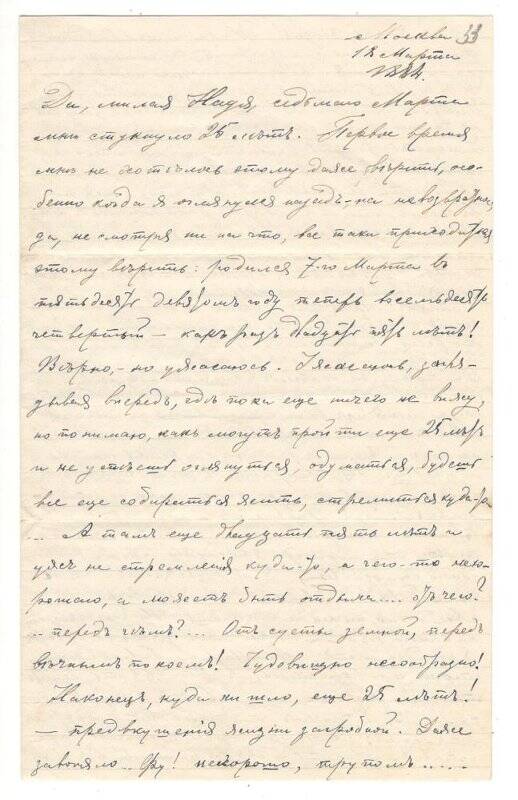 Москва 33
18 Марта
1884.
Да, милая Надя, седьмого Марта
мнѣ стукнуло 25 лѣтъ. Первое время
мнѣ не хотѣлось этому даже вѣрить, осо-
бенно когда я оглянулся назадъ - на невозвратное
да, не смотря ни на что, все таки приходится
этому вѣрить: родился 7-го Марта въ
пятьдесятъ девятомъ году теперь восемьдесятъ
четвертый — какъ разъ двадцать пять лѣтъ!
Вѣрю, - но ужасаюсь. Ужасаюсь, загля-
дывая впередъ, гдѣ пока еще ничего не вижу,
но понимаю, какъ могутъ пройти еще 25 лѣтъ
и не успѣешь оглянуться, одуматься, будешь
все еще собираться жить, стремиться куда-то
... А тамъ еще двадцать пять лѣтъ и
ужъ не стремленія куда-то, а чего-то нехо-
рошаго, а можетъ быть отдыха.... отъ чего?
.. передъ чѣмъ?... Отъ суеты земной, передъ
вѣчнымъ покоемъ! Чудовищно несообразно!
Наконецъ, куда ни шло, еще 25 лѣтъ!
— предвкушенія жизни загробной. Даже
завоняло.. Фу! нехорошо, трупомъ.....